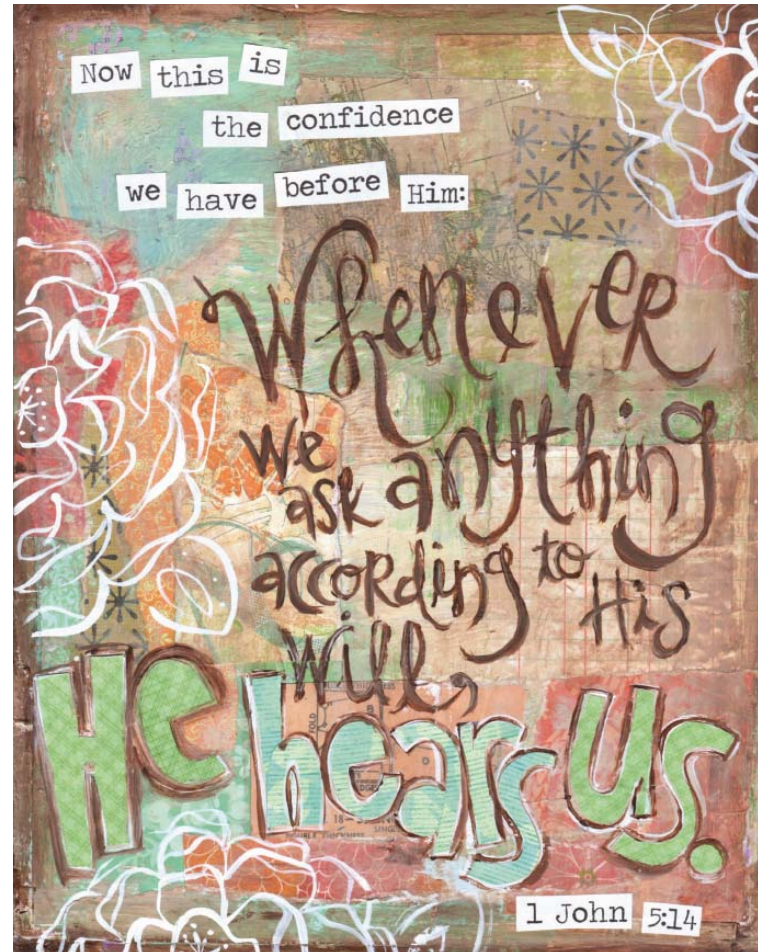 Now this is
the confidence
we have before Him:
Whenever
we
ask anything
according to
His
will,
He hears us.
1 John 5:14